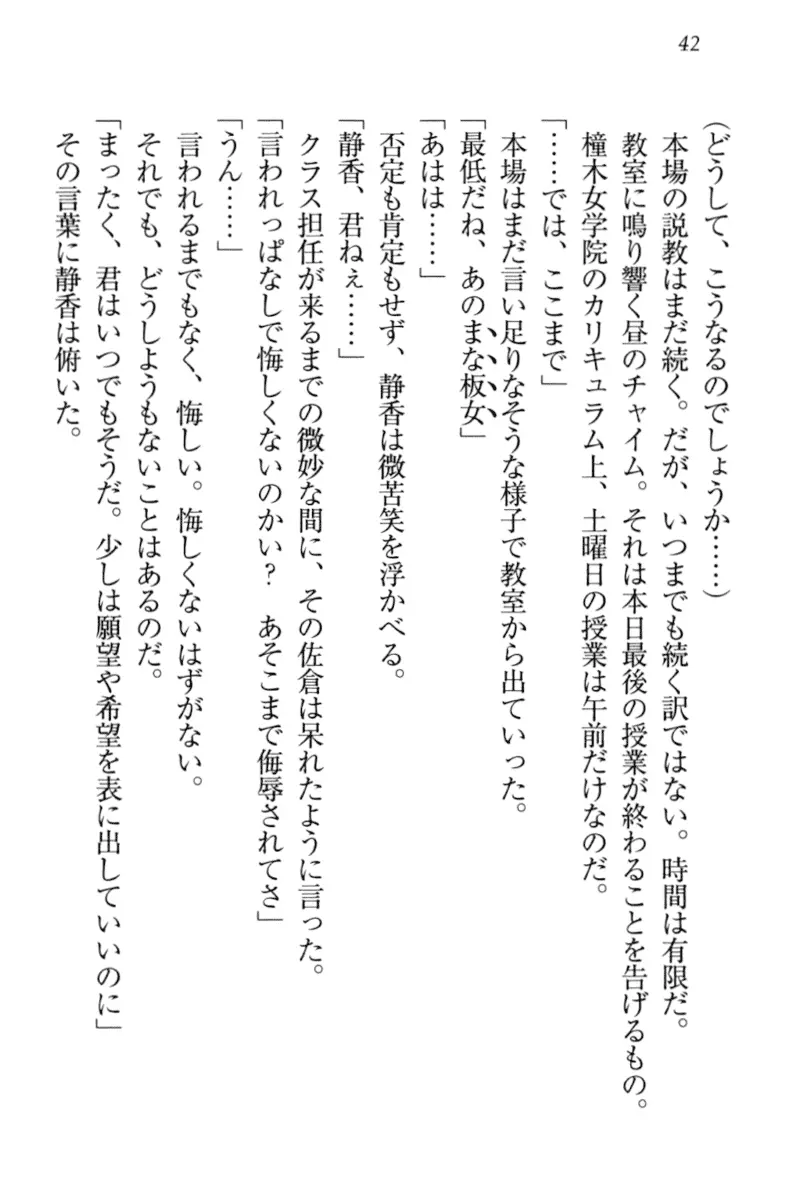 42
(どうして、こうなるのでしょうか……)
本場の説教はまだ続く。だが、いつまでも続く訳ではない。時間は有限だ。
教室に鳴り響く昼のチャイム。それは本日最後の授業が終わることを告げるもの。
橦木女学院のカリキュラム上、土曜日の授業は午前だけなのだ。
「……では、ここまで」
本場はまだ言い足りなそうな様子で教室から出ていった。
「最低だね、あのまな板女」
「あはは……」
否定も肯定もせず、静香は微苦笑を浮かべる。
「静香、君ねぇ……」
クラス担任が来るまでの微妙な間に、その佐倉は呆れたように言った。
「言われっぱなしで悔しくないのかい? あそこまで侮辱されてさ」
「うん……」
言われるまでもなく、悔しい。悔しくないはずがない。
それでも、どうしようもないことはあるのだ。
「まったく、君はいつでもそうだ。少しは願望や希望を表に出していいのに」
その言葉に静香は俯いた。